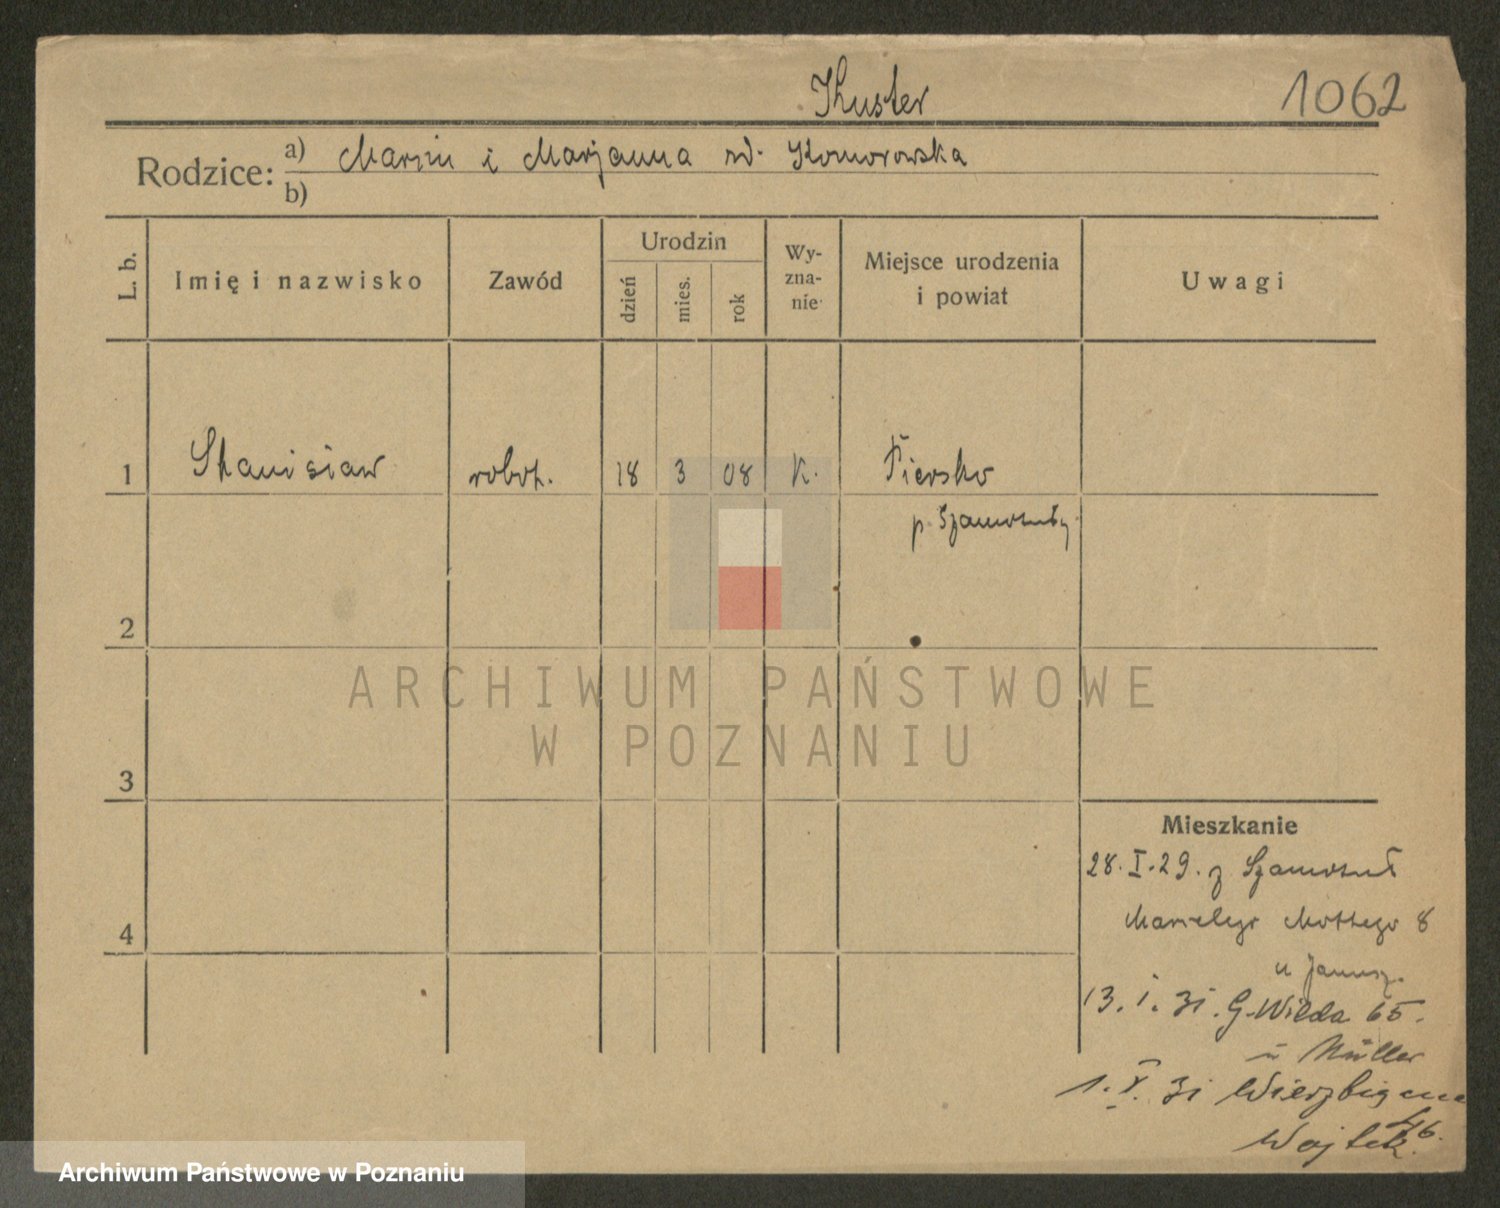 Kuster
1062
Rodzice: a) Marcin i Marjanna zd. Komorowska
b)
L. b.
Imię i nazwisko
Zawód
Urodzin
dzień
mies.
rok
Wy-
zna-
nie
Miejsce urodzenia
i powiat
Uwagi
1 Stanisław robot. 18 3 08 K. Piersko
p. Szamotuły
2
3
4
Mieszkanie
28. I. 29. z Szamotuł
Marcelego Mottego 8
u Janusz.
13. I. 31. G. Wilda 65.
u Müller
1. X. 31 Wierzbięcice
46.
Wojtek.
ARCHIWUM PAŃSTWOWE
W POZNANIU
Archiwum Państwowe w Poznaniu